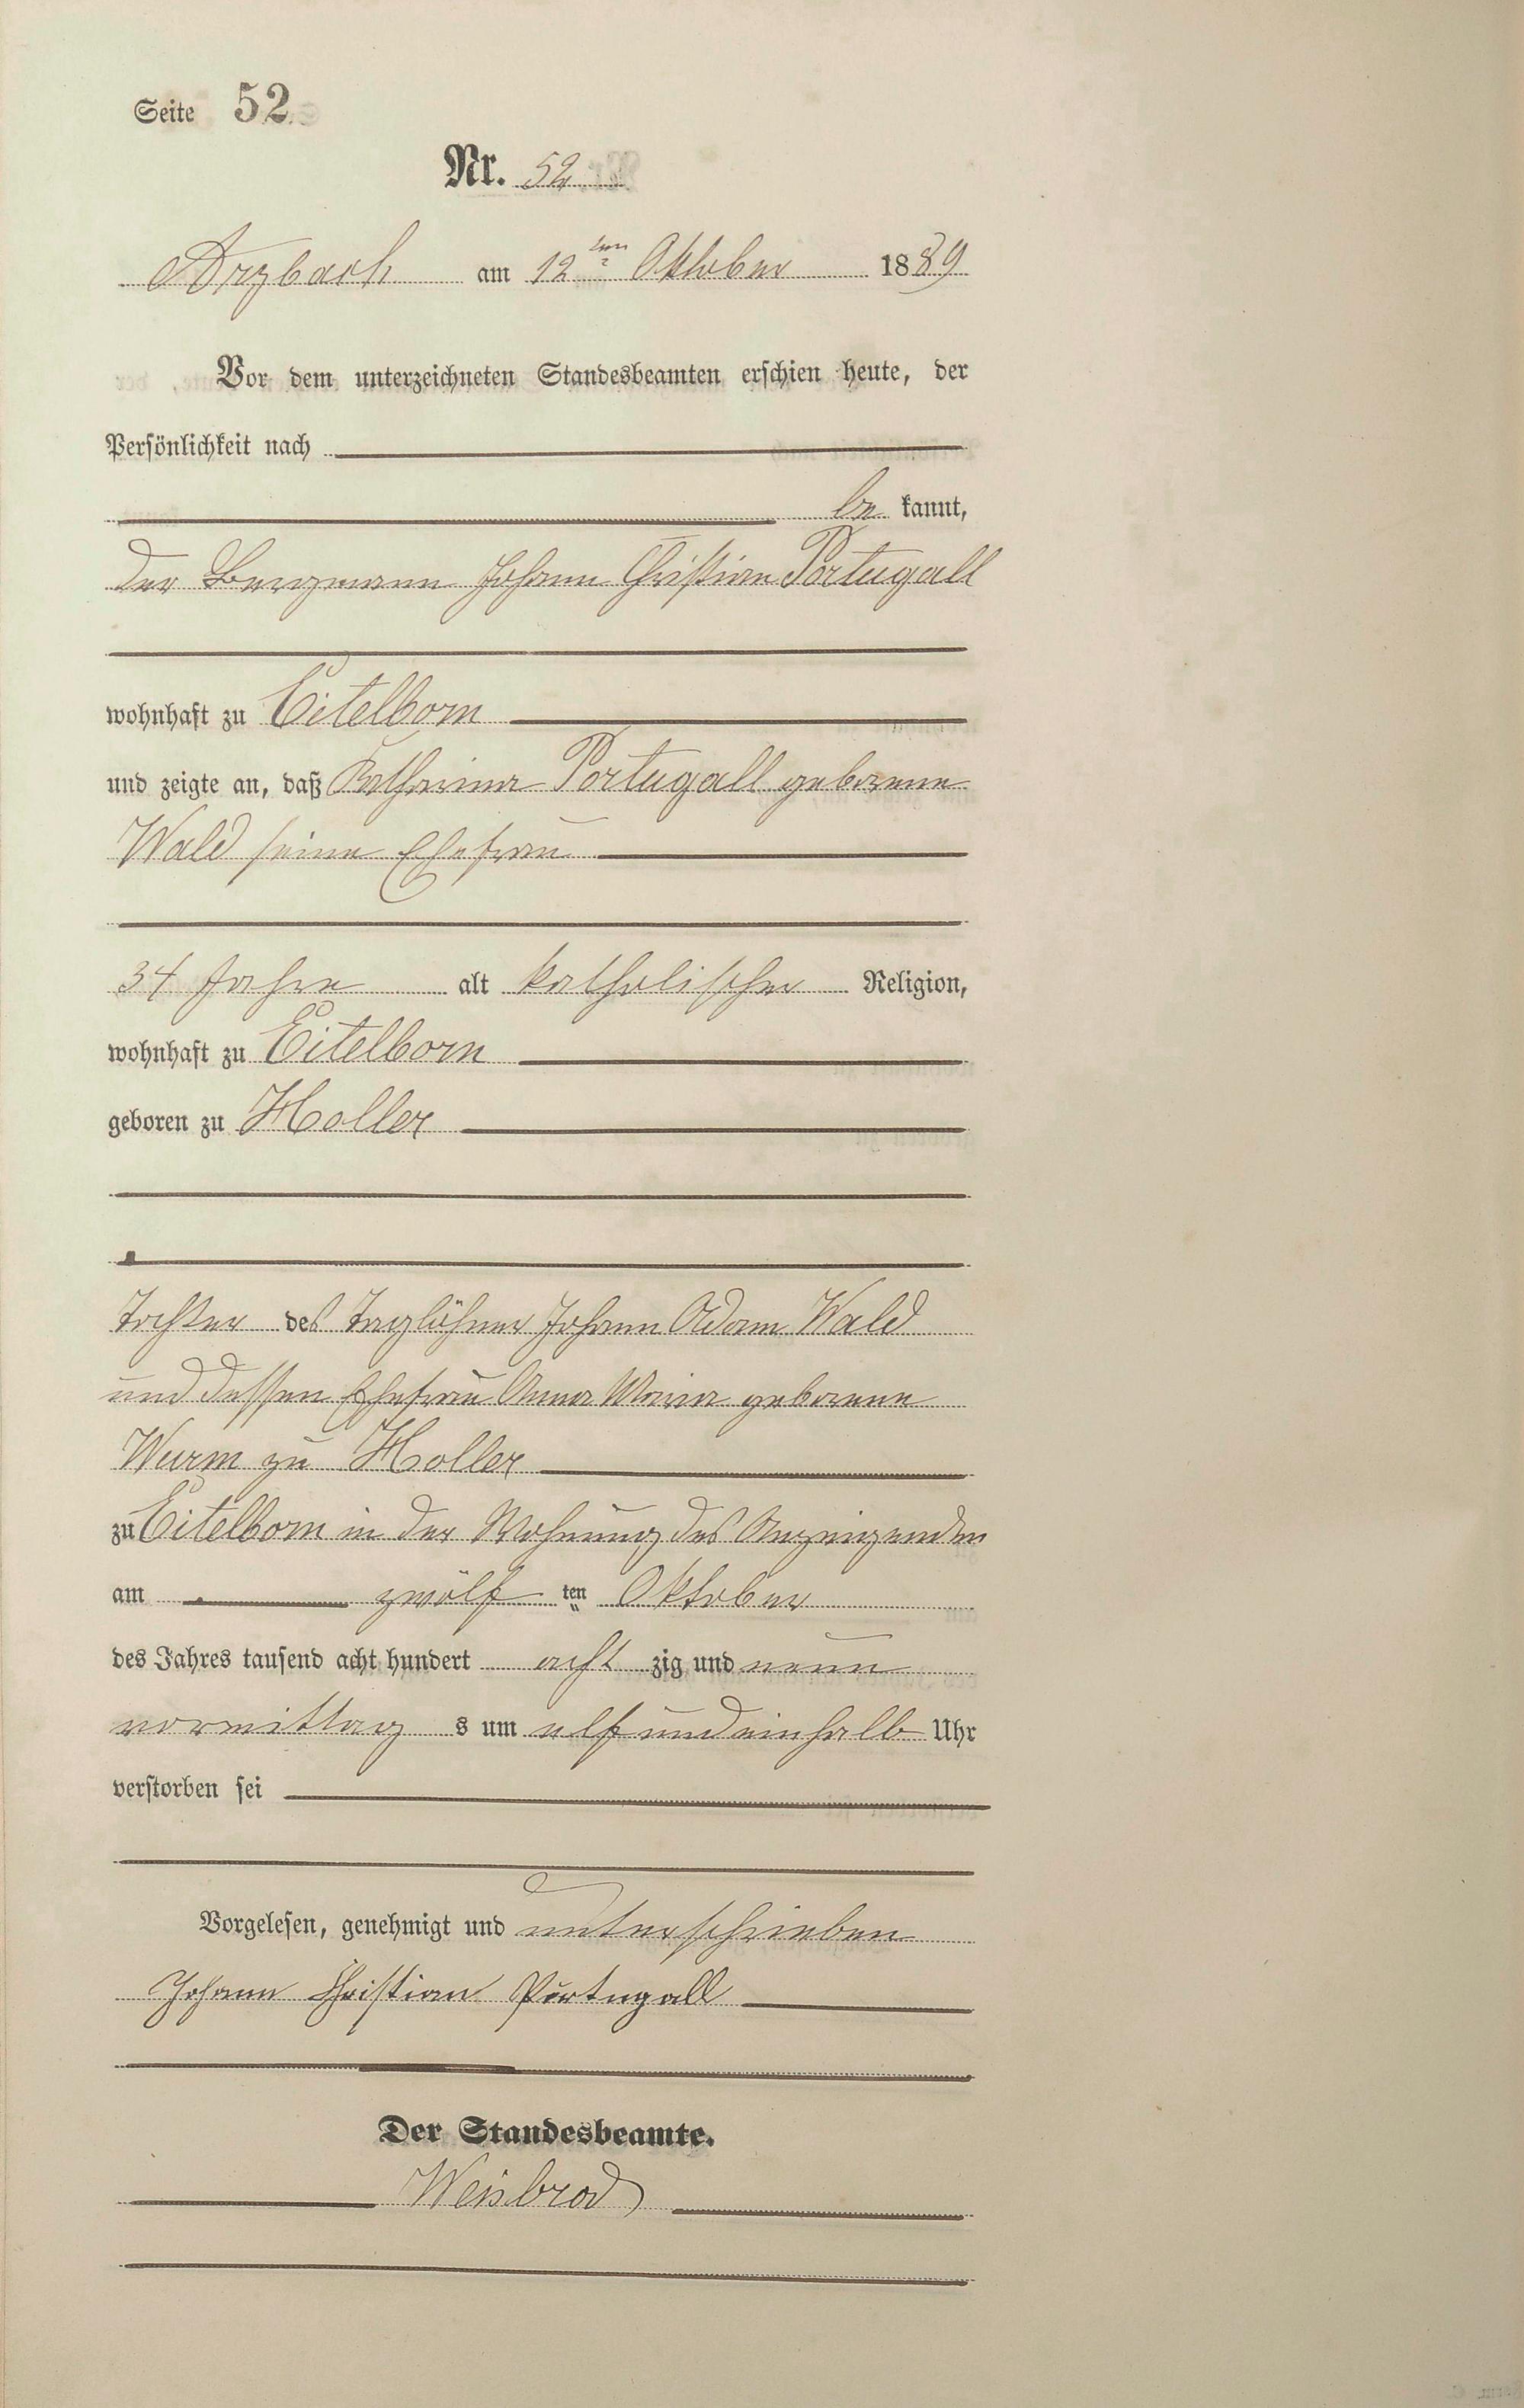 Seite 52
Nr. 52
Arzbach am 12ten Oktober 1889
Vor dem unterzeichneten Standesbeamten erschien heute, der
Persönlichkeit nach
be kannt,
der Bergmann Johann Christian Portugall
wohnhaft zu Eitelborn
und zeigte an, daß Katharina Portugall geborene
Wald seine Ehefrau
34 Jahre alt katholischer Religion,
wohnhaft zu Eitelborn
geboren zu Holler
Tochter des Taglöhner Johann Adam Wald
und dessen Ehefrau Anna Maria geborene
Wurm zu Holler
zu Eitelborn in der Wohnung des Anzeigenden
am zwölf ten Oktober
des Jahres tausend acht hundert acht zig und neun
vormittag s um elf und einhalb Uhr
verstorben sei
Vorgelesen, genehmigt und unterschrieben
Johann Christian Portugall
Der Standesbeamte.
Weisbrod